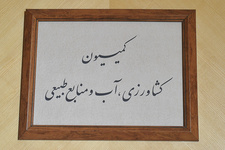 کمیسیون
کشاورزی ، آب و منابع طبیعی